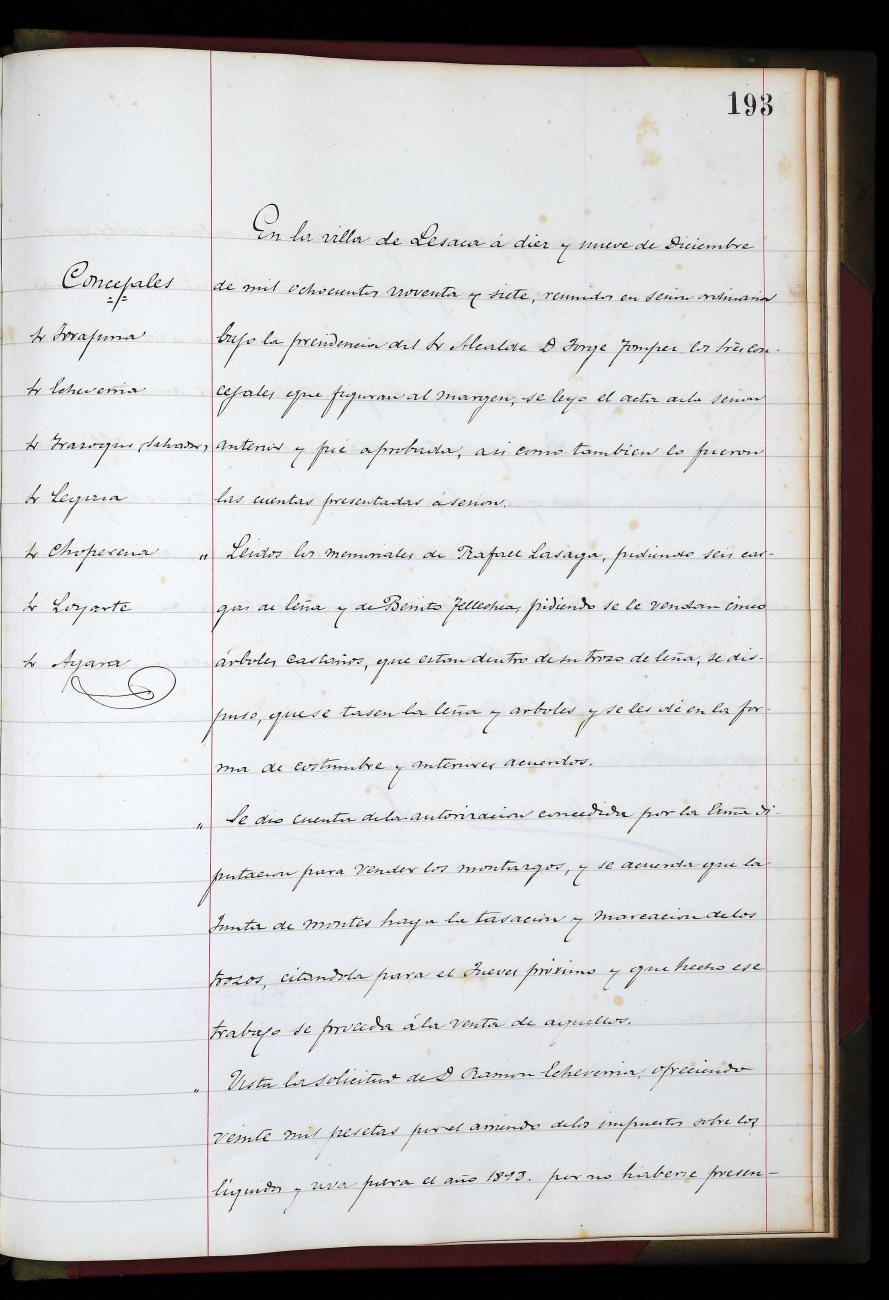 193
En la villa de Lesaca á diez y nueve de Diciembre
de mil ochocientos noventa y siete, reunidos en sesion ordinaria
bajo la presidencia del Sr Alcalde D Jorge los Sres con-
cejales que figuran al margen, se leyo el acta de la sesion
anterior y fué aprobada, asi como tambien lo fueron
las cuentas presentadas á sesion.
" Leidos los memoriales de Rafael Lasaga, pidiendo seis car-
gas de leña y de Benito Tellechea, pidiendo se le vendan cinco
árboles castaños, que estan dentro de su trozo de leña, se dis-
puso, que se tasen la leña y arboles y se les dé en la for-
ma de costumbre y anteriores acuerdos.
" Se dio cuenta de la autorizacion concedida por la Exma Di-
putacion para vender los montazgos, y se acuerda que la
Junta de montes haga la tasacion y marcacion de los
trozos, citandola para el Jueves próximo y que hecho ese
trabajo se proceda á la venta de aquellos.
" Vista la solicitud de D Ramon Echeverria, ofreciendo
veinte mil pesetas por el arriendo de los impuestos sobre los
líquidos y uva para el año 1893. por no haberse presen-
Concejales
Sr
Sr Echeverria
Sr Irazoqui (Salvador)
Sr Legasa
Sr Choperena
Sr Loyarte
Sr